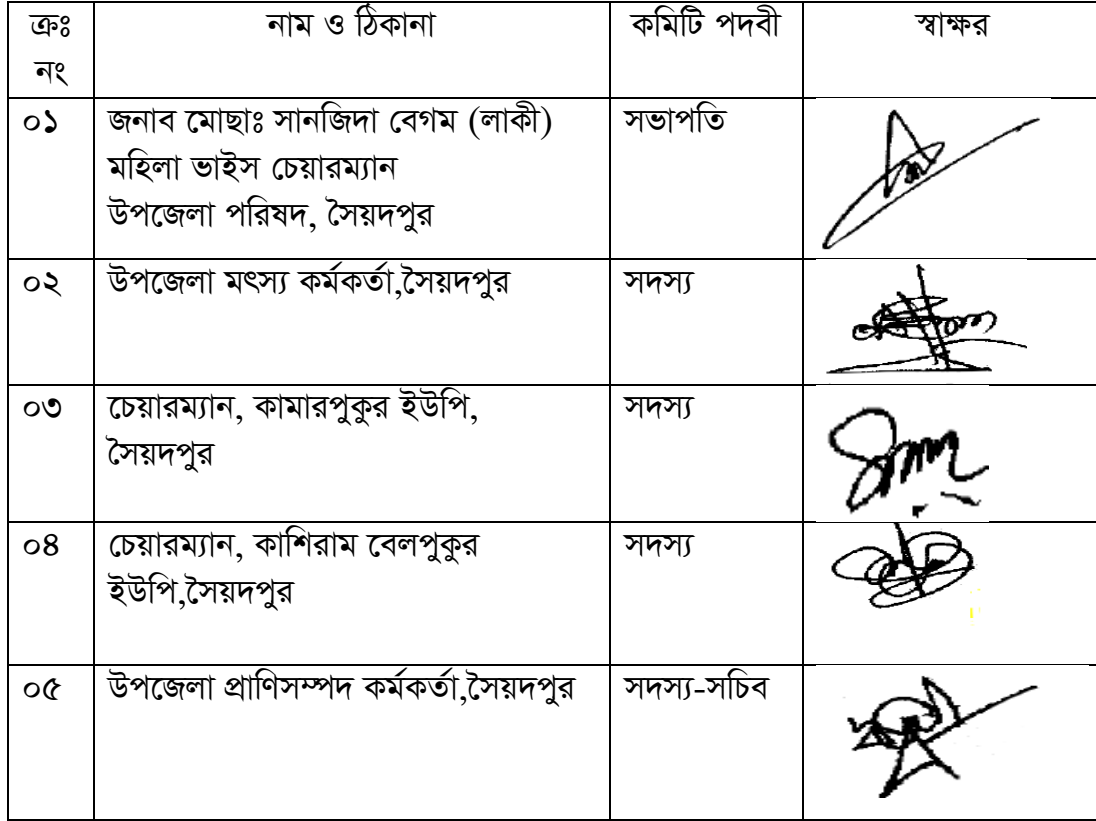 ক্রঃ নাম ও ঠিকানা কমিটি পদবী স্বাক্ষর
নং
০১ জনাব মোছাঃ সানজিদা বেগম (লাকী) সভাপতি
মহিলা ভাইস চেয়ারম্যান
উপজেলা পরিষদ, সৈয়দপুর
০২ উপজেলা মৎস্য কর্মকর্তা,সৈয়দপুর সদস্য
০৩ চেয়ারম্যান, কামারপুকুর ইউপি, সদস্য
সৈয়দপুর
০৪ চেয়ারম্যান, কাশিরাম বেলপুকুর সদস্য
ইউপি,সৈয়দপুর
০৫ উপজেলা প্রাণিসম্পদ কর্মকর্তা,সৈয়দপুর সদস্য-সচিব